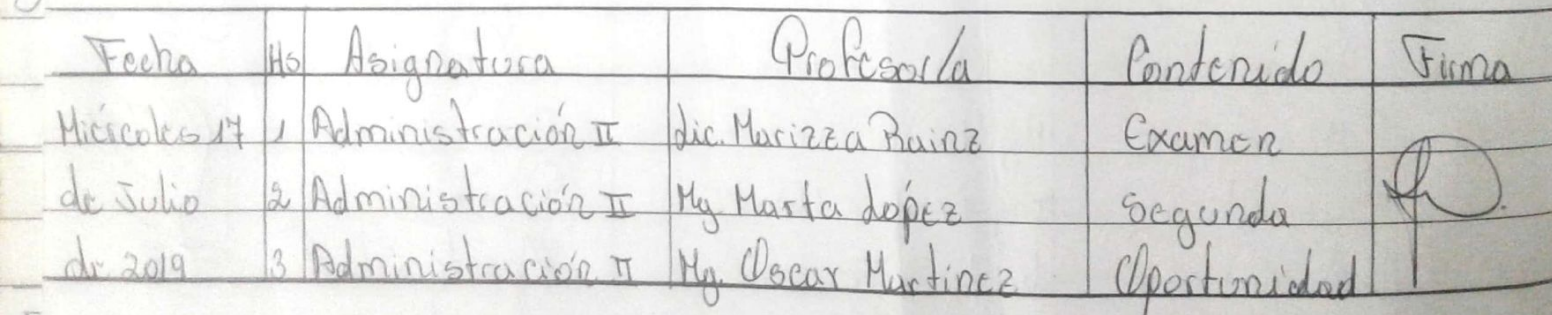 Fecha Hs Asignatura Profesor/a Contenido Firma
Miércoles 17 1 Administración II Lic. Marizza Rainz Examen
de Julio 2 Administración II Mg Marta López Segunda
de 2019 3 Administración II Mg. Oscar Martinez Oportunidad